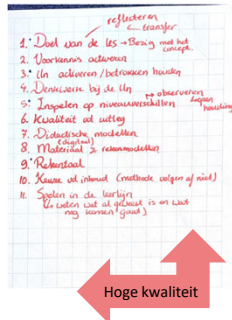 reflecteren
transfer
1. Doel van de les → Bezig met het
concept.
2. Voorkennis activeren
3. lln activeren / betrokken houden
4. Denkwerk bij de lln
observeren
5. Inspelen op niveauverschillen
houding
6. Kwaliteit vd uitleg
7. Didactische modellen
(digitaal)
8. Materiaal & rekenmodellen
9. Rekentaal
10. Keuze vd inhoud (methode volgen of niet)
11. Spelen in de leerlijn
↳ weten wat al geweest is en wat
nog komen gaat)
Hoge kwaliteit